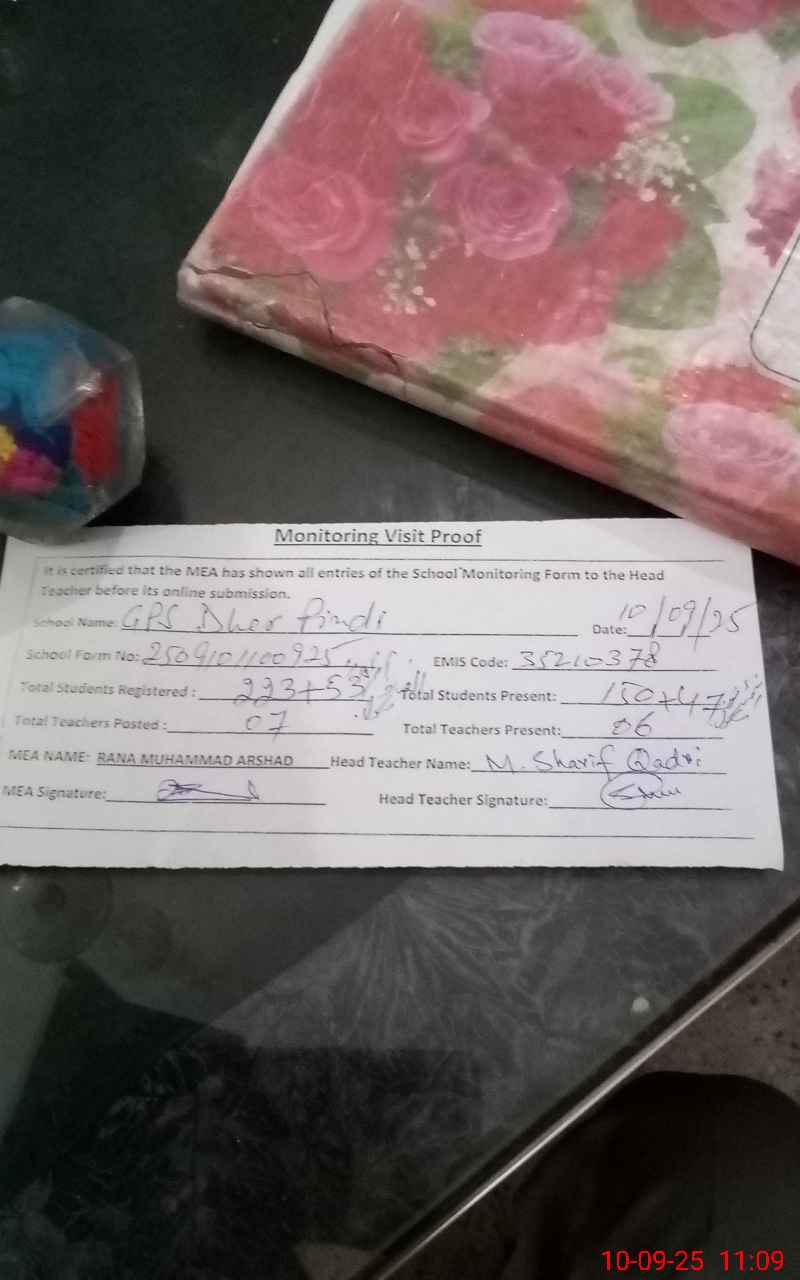 Monitoring Visit Proof
It is certified that the MEA has shown all entries of the School Monitoring Form to the Head
Teacher before its online submission.
School Name: GPS Dher Pindi Date: 10/09/25
School Form No: 2509101100925 EMIS Code: 35210378
Total Students Registered : 223+53 Total Students Present: 150+47
Total Teachers Posted : 07 Total Teachers Present: 06
MEA NAME: RANA MUHAMMAD ARSHAD Head Teacher Name: M. Sharif Qadri
MEA Signature: Head Teacher Signature:
10-09-25 11:09